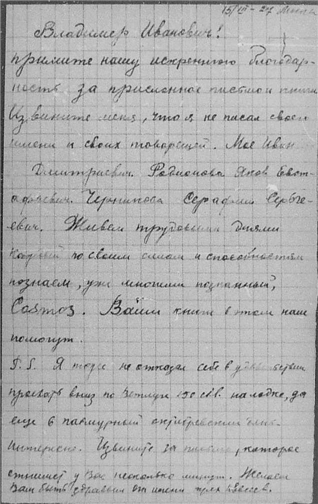 Владимир Иванович!
примите нашу искреннюю благодар-
ность за присланное письмо и книги
Извините меня, что я не писал своего
имени и своих товарищей. Мое Иван
Дмитриевич. Родионова Яков Евст-
афьевич. Черникова Серафим Сергее-
евич. Живем трудовыми днями
каждый по своим силам и способностям
познаем, уже многими познанный,
Ваши книги в этом нам
помогут.
P.S. Я тоже не отказал себе в
проехать вниз по Ветлуге 150 км. на лодке, да
еще в пасмурный октябрьский день.
Интересно. Извините за письмо, которое
отнимет у Вас несколько минут. Желаем
Вам быть здоровым от имени трех